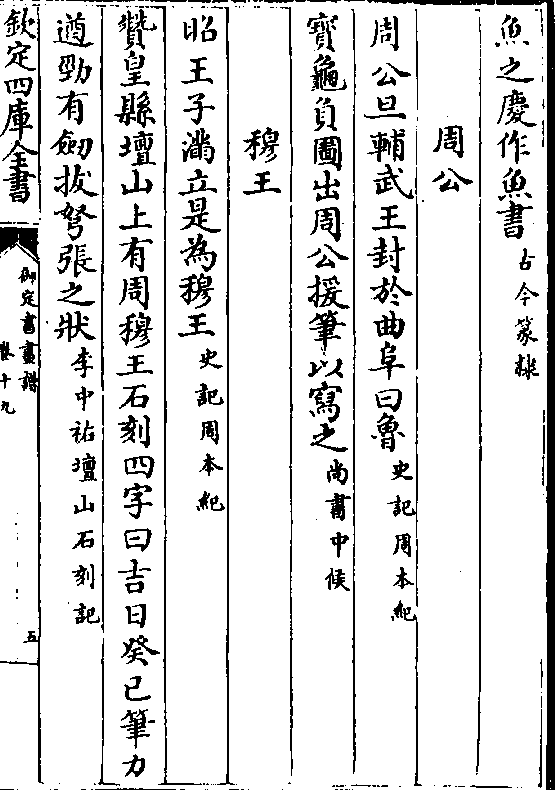 魚之慶作魚書古今篆隸
周公
周公旦輔武王封於曲阜曰魯史記周本紀
寶龜負圖出周公援筆以寫之尚書中候
穆王
昭王子滿立是為穆王史記周本紀
贊皇縣壇山上有周穆王石刻四字曰吉日癸巳筆力
遒勁有劒拔弩張之狀李中祐壇山石刻記
欽定四庫全書
御定書畫譜
卷十九
五